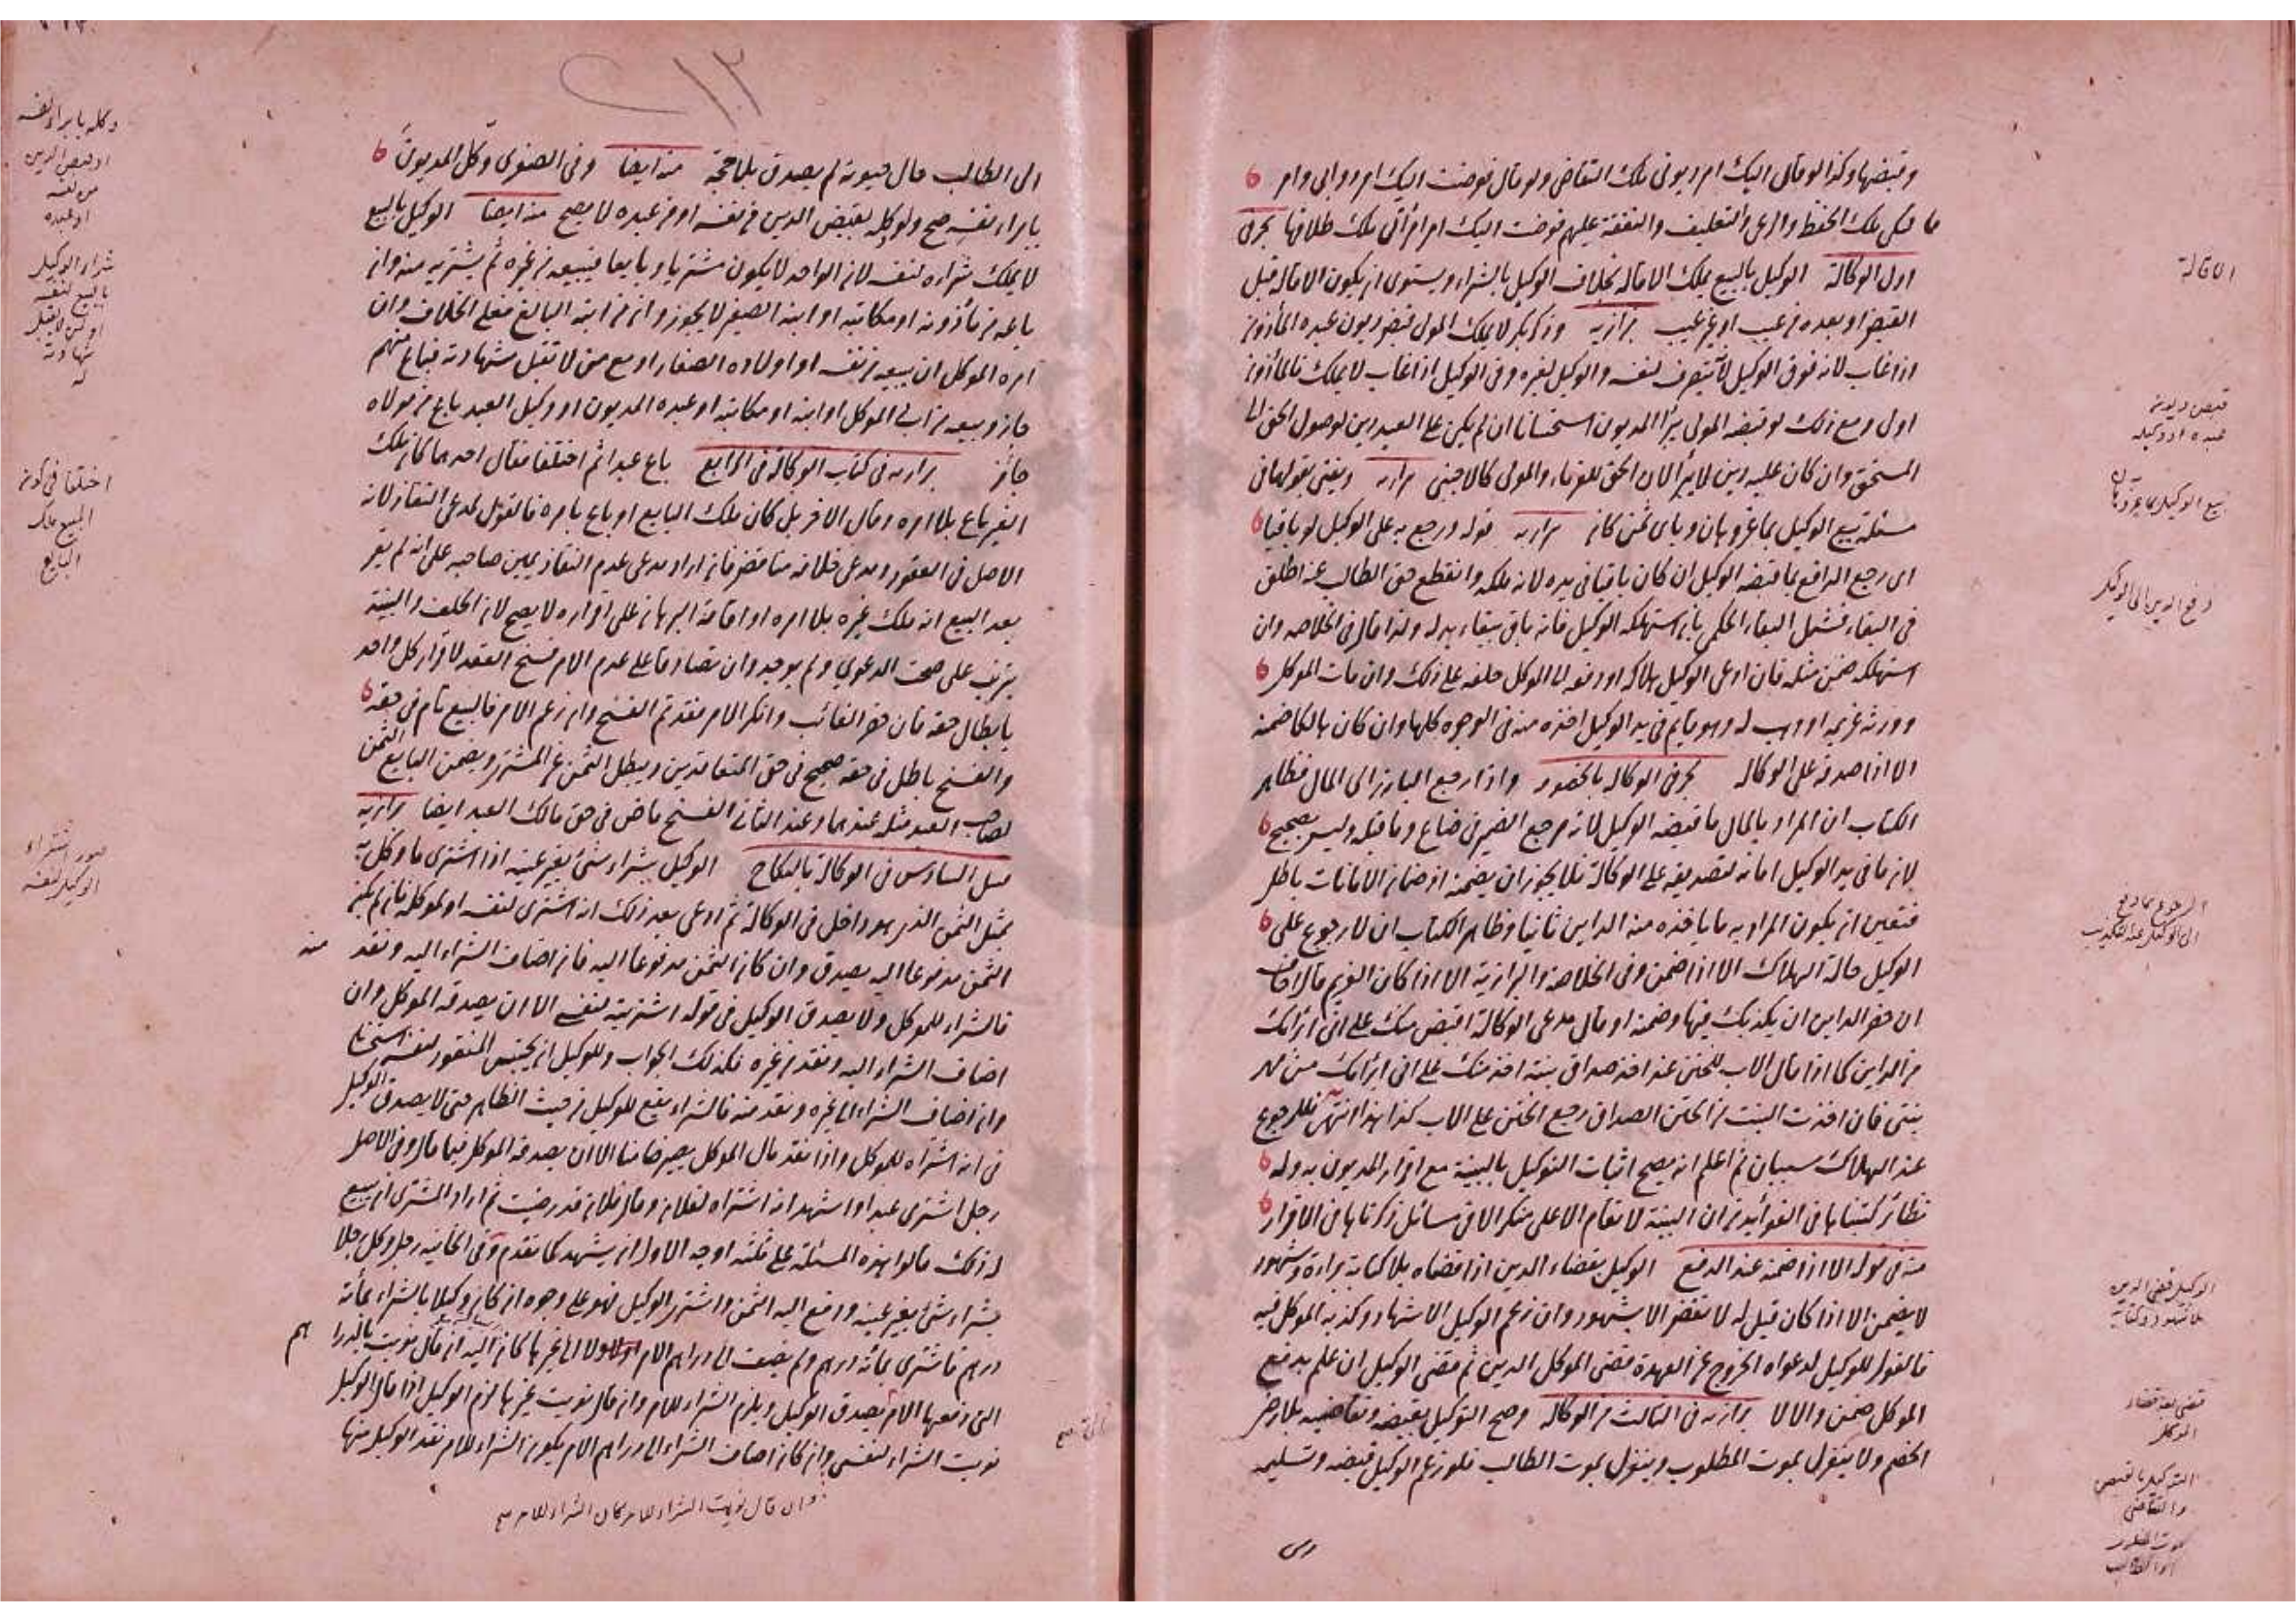 وقبضها وكذا لو قال اليك امر ديونى ملك التقاضى ولو قال فوضت اليك امر دوابى وامر
مماليكى ملك الحفظ والرعى والتعليف والنفقة عليهم فوضت اليك امر امرأتى ملك طلاقها بحر فى
اول الوكالة الوكيل بالبيع يملك الاقالة بخلاف الوكيل بالشراء ويستوى ان يكون الاقالة قبل
القبض او بعده من عيب او غير عيب بزازيه وذكر بكر لا يملك المولى قبض ديون عبده المأذون
اذا غاب لانه فوق الوكيل لانه يتصرف لنفسه والوكيل لغيره وفى الوكيل اذا غاب لا يملك فالمأذون
اولى ومع ذلك لو قبضه المولى يبرأ المديون استحسانا ان لم يكن على العبد دين لوصول الحق الى
المستحق وان كان عليه دين لا يبرأ لان الحق للغرماء والمولى كالاجنبى بزازيه ويفتى بقولهما فى
مسئلة بيع الوكيل بما عز وهان وباى ثمن كان بزازيه قوله ورجع به على الوكيل لو باقيا
اى رجع الدافع بما قبضه الوكيل ان كان باقيا فى يده لانه ملكه وانقطع حق الطالب عنه اطلق
فى البقاء فشمل البقاء الحكمى بان استهلكه الوكيل فانه باق ببقاء بدله ولذا قال فى الخلاصه وان
استهلكه ضمن مثله فان ادعى الوكيل هلاكه او دفعه الى الموكل حلفه على ذلك وان مات الموكل
وورثه غريمه او وهب له وهو قايم فى يد الوكيل اخذه منه فى الوجوه كلها وان كان هالكا ضمنه
الا اذا صدقه على الوكالة بحر فى الوكالة بالخصومه واذا رجع البارز الى المال فظاهر
الكتاب ان المراد بالمال ما قبضه الوكيل لانه مرجع الضمير فى ضاع وما قبله وليس بصحيح
لان ما فى يد الوكيل امانه لتصديقه على الوكالة فلا يجوز ان يضمنه اذ ضمان الامانات باطل
فتعين ان يكون المراد به ما ياخذه منه الداين ثانيا وظاهر الكتاب ان لا رجوع على
الوكيل حالة الهلاك الا اذا ضمن وفى الخلاصه والبزازية الا اذا كان الغريم قال اخاف
ان حضر الداين ان يكذبك فيها وضمنه او قال مدعى الوكالة اقبض منك على انى ابرأتك
من الداين كما اذا قال الاب للختن عند اخذ صداق بنته اخذ منك على انى ابرأتك من مهر
بنتى فان اخذت البنت من الختن الصداق رجع الختن على الاب كذا هذا انتهى فللرجوع
عند الهلاك سببان ثم اعلم انه يصح اثبات التوكيل بالبينة مع اقرار المديون به وله
نظائر كتبناها فى الفوائد من ان البينة لا تقام الا على منكر الا فى مسائل ذكرناها فى الاقرار
منه فى قوله الا اذا ضمنه عند الدفع الوكيل بقضاء الدين اذا قضاه بلا كتابة براءة وشهود
لا يضمن الا اذا كان قيل له لا تقض الا بشهود وان زعم الوكيل الاشهاد وكذبه الموكل فيه
فالقول للوكيل لدعواه الخروج عن العهدة قضى الموكل الدين ثم قضى الوكيل ان علم بدفع
الموكل ضمن والا لا بزازيه فى الثالث من الوكالة وصح التوكيل بقبضه وتقاضيه بلا رضى
الخصم ولا ينعزل بموت المطلوب وينعزل بموت الطالب فلو زعم الوكيل قبضه وتسليمه
الاقالة
قبض ديونه
عبده او وكيله
بيع الوكيل بما عز وهان
دفع الدين الى الوكيل
الرجوع بما دفع
الى الوكيل عند التكذيب
الوكيل قضى الدين
بلا شهود وكتابة
قضى بعد قضاء
الموكل
التوكيل بالقبض
والتقاضى
موت المطلوب
او الطالب
الى الطالب حال حيوته لم يصدق بلا حجة منه ايضا وفى الصغرى وكل المديون
بابراء نفسه صح ولو وكله بقبض الدين من نفسه او من عبده لا يصح منه ايضا الوكيل بالبيع
لا يملك شراءه لنفسه لان الواحد لا يكون مشتريا وبايعا فيبيعه من غيره ثم يشتريه منه وان
باعه من مأذونه او مكاتبه او ابنه الصغير لا يجوز وان من ابنه البالغ فعلى الخلاف وان
امره الموكل ان يبيعه من نفسه او اولاده الصغار او مع من لا تقبل شهادته فباع منهم
جاز وبيعه من ابى الموكل او ابنه او مكاتبه او عبده المديون او وكيل العبد باع من مولاه
جائز بزازيه فى كتاب الوكالة فى الرابع باع عبدا ثم اختلفا فقال احدهما كان ملك
الغير باع بلا امره وقال الاخر بل كان ملك البايع او باع بامره فالقول لمدعى النفاذ لانه
الاصل فى العقود ومدعى خلافه مناقض فان اراد مدعى عدم النفاذ يمين صاحبه على انه لم يقر
بعد البيع انه ملك غيره بلا امره او اقامة البرهان على اقراره لا يصح لان الحلف والبينة
يترتب على صحة الدعوى ولم يوجد وان تصادقا على عدم الامر فسخ العقد لاقرار كل واحد
بابطال حقه فان حضر الغائب وانكر الامر فقد تم الفسخ وان زعم الامر فالبيع تام فى حقه
والفسخ باطل فى حقه صحيح فى حق المتعاقدين ويبطل الثمن عن المشترى ويضمن البايع الثمن
لصاحب العبد مثله عندهما وعند الثانى الفسخ ماض فى حق مالك العبد ايضا بزازيه
قبيل السادس فى الوكالة بالنكاح الوكيل بشراء شئ بغير عينه اذا اشترى ما وكل به
بمثل الثمن الذى هو داخل فى الوكالة ثم ادعى بعد ذلك انه اشترى لنفسه او لموكله فان لم يكن
الثمن مدفوعا اليه يصدق وان كان الثمن مدفوعا اليه فان اضاف الشراء اليه ونقد منه
فالشراء للموكل ولا يصدق الوكيل فى قوله اشتريته لنفسى الا ان يصدقه الموكل وان
اضاف الشراء اليه ونقد من غيره فكذلك الجواب وللوكيل ان يحتبس المنقود لنفسه استحسانا
وان اضاف الشراء الى غيره ونقد منه فالشراء يقع للوكيل من حيث الظاهر حتى لا يصدق الوكيل
فى انه اشتراه للموكل واذا نقد مال الموكل يصير ضامنا الا ان يصدقه الموكل فيما قال وفى الاصل
رجل اشترى عبدا واشهد انه اشتراه لفلان وقال فلان قد رضيت ثم اراد المشترى ان يبيع
له ذلك قالوا هذه المسئلة على ثلثه اوجه الاول ان يشهد كما تقدم وفى الخانيه رجل وكل رجلا
بشراء شئ بغير عينه ودفع اليه الثمن واشترى الوكيل فهو على وجوه ان كان وكيلا بالشراء بمأته
درهم فاشترى بمأته درهم ولم يضف الى دراهم الامر ولا الى غيرها كان اليه ان قال نويت بالدراهم
التى دفعها الامر يصدق الوكيل ويلزم الشراء للامر وان قال نويت غيرها لزم الوكيل اذا قال الوكيل
نويت الشراء لنفسى وان كان اضاف الشراء الى دراهم الامر يكون الشراء للامر نقد الوكيل منها
وان قال نويت الشراء للامر كان الشراء للامر صح
وكله بابراء نفسه
او قبض الدين
من نفسه
او عبده
شراء الوكيل
بالبيع لنفسه
او لمن لا تقبل
شهادته
له
اختلفا فى كونه
المبيع ملك
البايع
الوكيل لنفسه